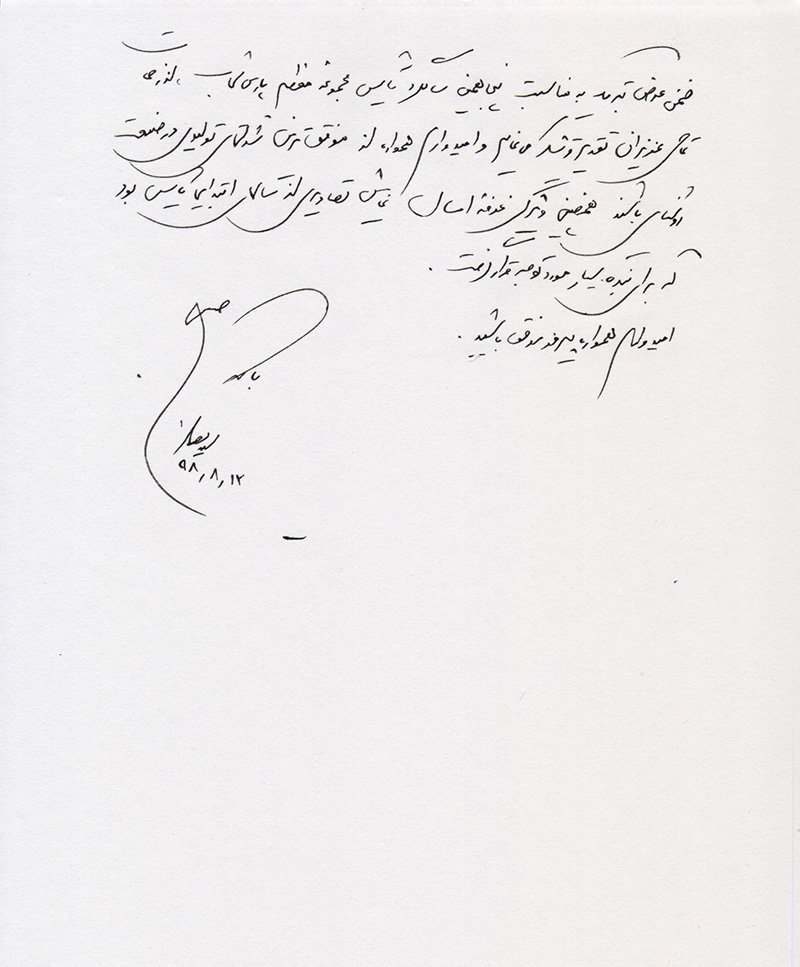 ضمن عرض تبریک به مناسبت پنجاهمین سالگرد تاسیس مجموعه معظم پارس شهاب، از زحمات
تمامی عزیزان تقدیر و تشکر می نمایم و امیدوارم همواره از موفق ترین شرکتهای تولیدی در صنعت
روشنایی باشند همچنین ویژگی غرفه امسال نمایش تصاویری از سالهای ابتدایی تاسیس بود
که برای بنده بسیار مورد توجه قرار گرفت.
امیدوارم همواره پیروز و موفق باشید.
با
۹۸٫۸٫۱۲